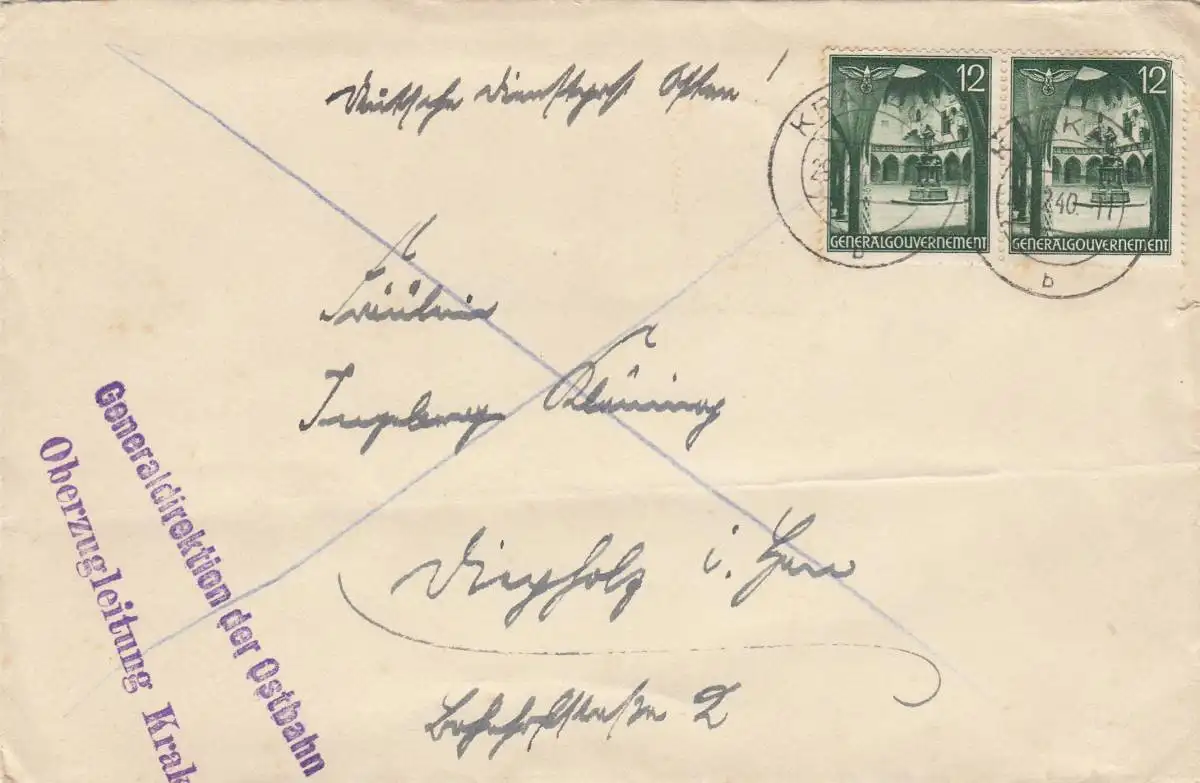 Deutsche Dienstpost Osten!
12
12
GENERALGOUVERNEMENT
GENERALGOUVERNEMENT
KRAK
b
b
40.-11
Fräulein
Ingeborg Klöning
Diepholz i. Han
Bahnhofstraße 2
Generaldirektion der Ostbahn
Oberzugleitung Krak